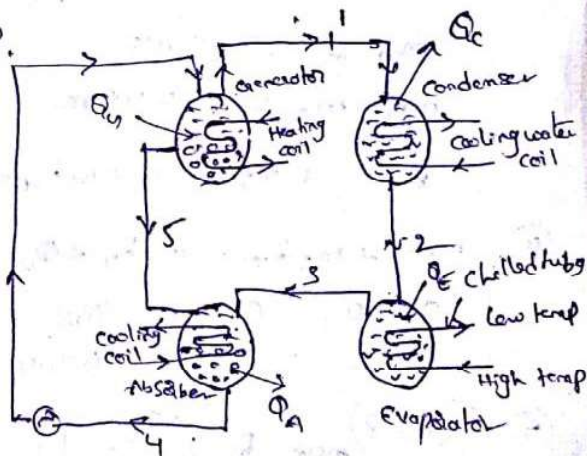 1
Generator
Qc
Condenser
QG
Heating
coil
Cooling water
coil
5
2
3
QE
Chilled tubs
Low temp
cooling
coil
High temp
Absorber
QA
Evaporator
4